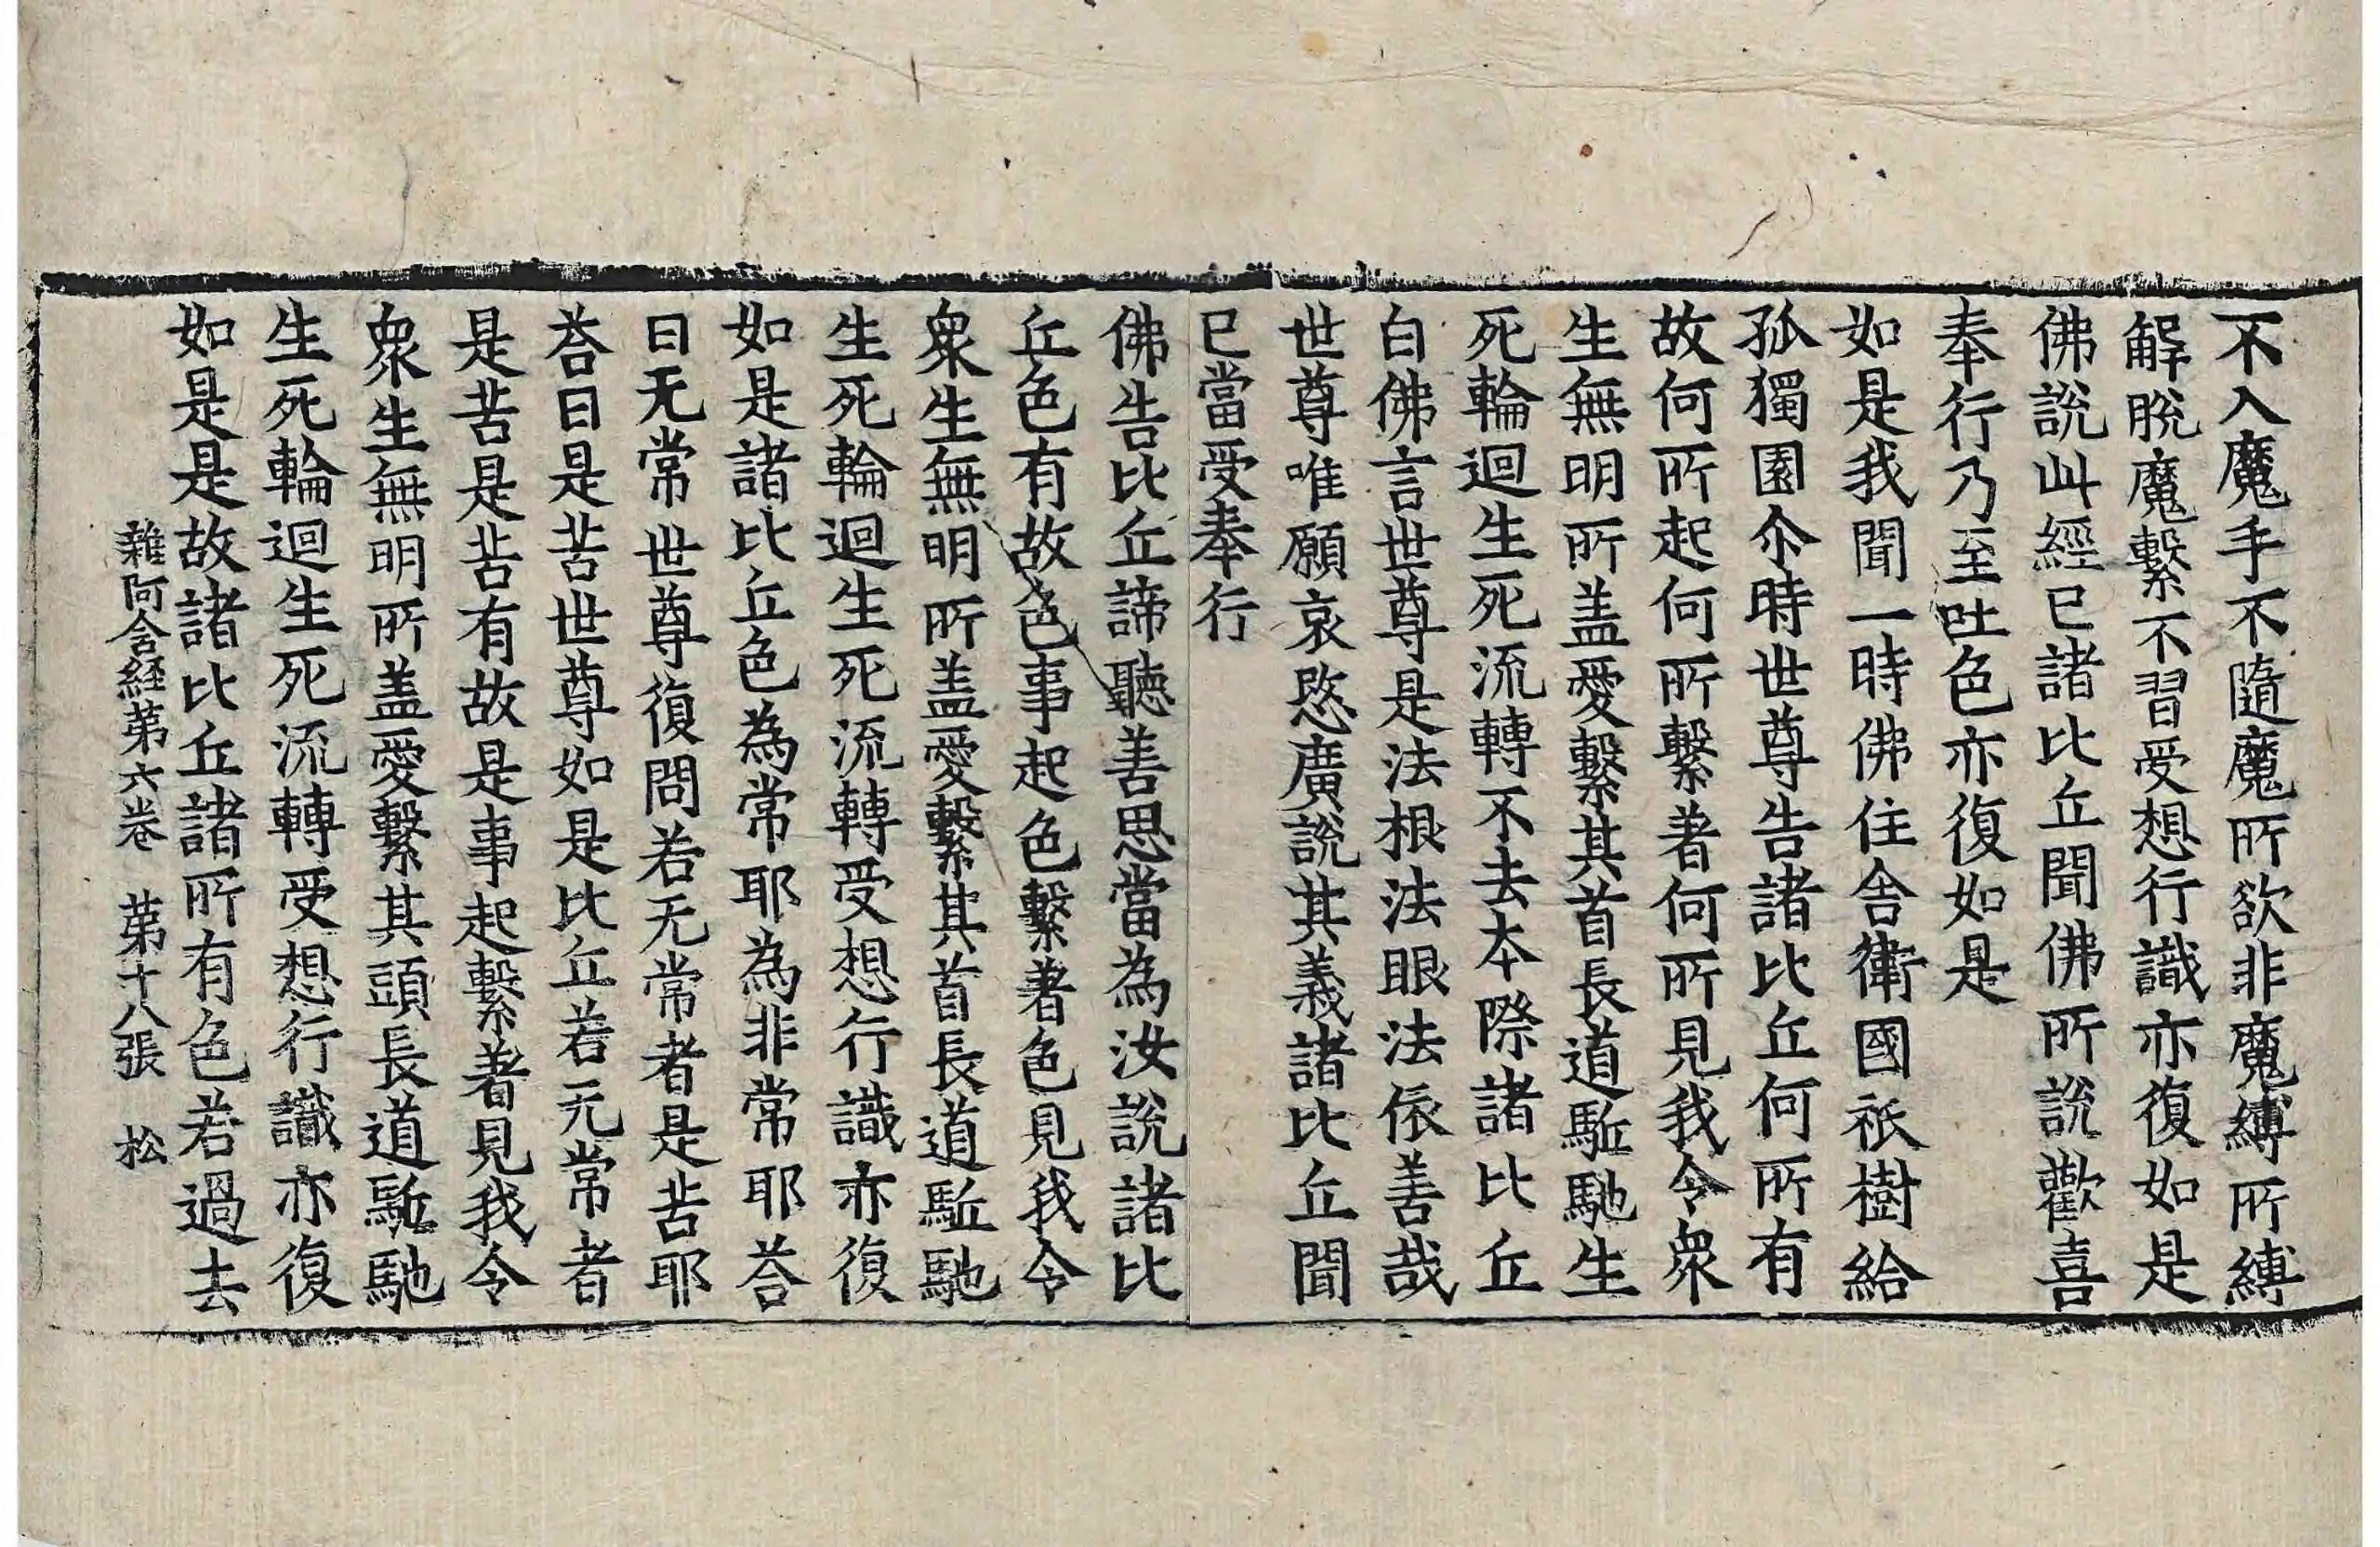 不入魔手不隨魔所欲非魔縛所縛
解脫魔繫不習受想行識亦復如是
佛說此經已諸比丘聞佛所說歡喜
奉行乃至吐色亦復如是
如是我聞一時佛住舍衛國祇樹給
孤獨園尒時世尊告諸比丘何所有
故何所起何所繫著何所見我令衆
生無明所盖愛繫其首長道駈馳生
死輪迴生死流轉不去本際諸比丘
白佛言世尊是法根法眼法依善哉
世尊唯願哀愍廣說其義諸比丘聞
已當受奉行
佛告比丘諦聽善思當為汝說諸比
丘色有故色事起色繫著色見我令
衆生無明所盖愛繫其首長道駈馳
生死輪迴生死流轉受想行識亦復
如是諸比丘色為常耶為非常耶荅
曰无常世尊復問若无常者是苦耶
荅曰是苦世尊如是比丘若无常者
是苦是苦有故是事起繫著見我令
衆生無明所盖愛繫其頭長道駈馳
生死輪迴生死流轉受想行識亦復
如是是故諸比丘諸所有色若過去
雜阿含経苐六卷 苐十八張 松